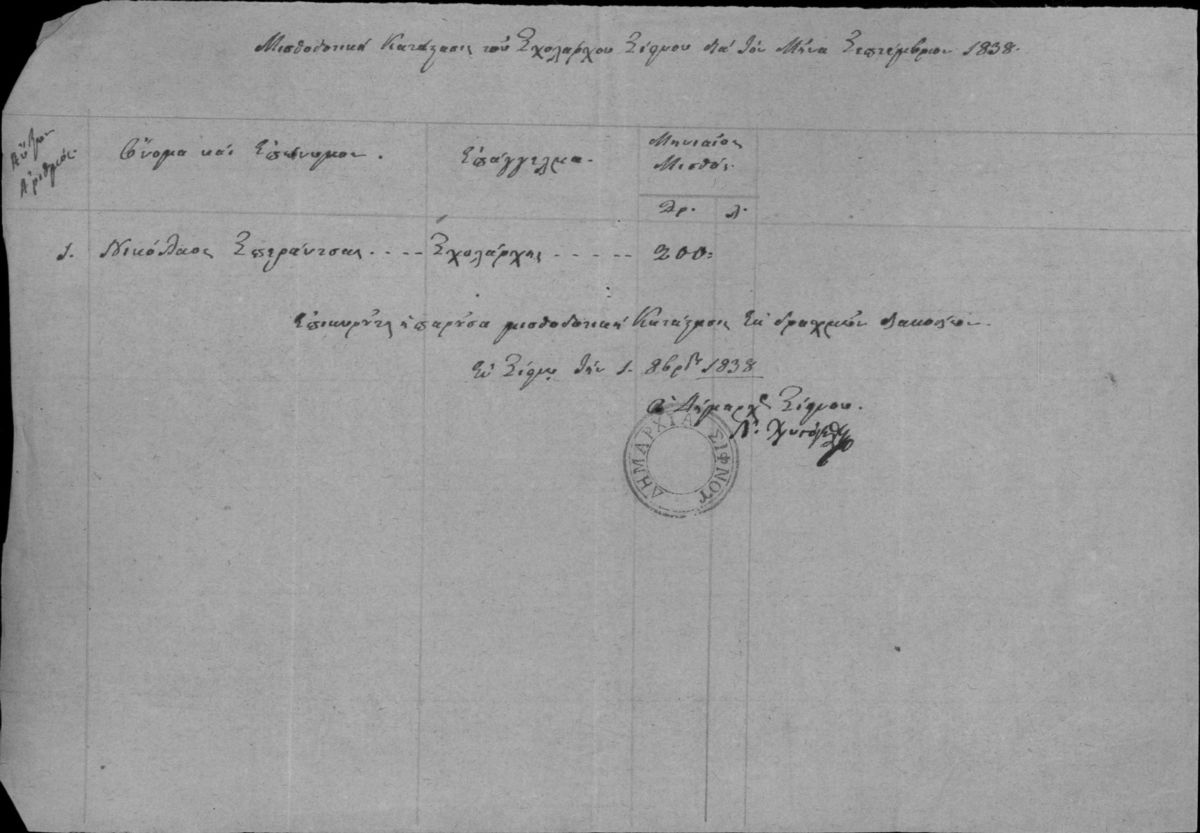 Μισθοδοτική Κατάστασις τοῦ Σχολάρχου Σίφνου διά τόν Μῆνα Σεπτέμβριον 1838.
Αὔξων Ἀριθμός.
Ὄνομα καί Ἐπώνυμον.
Ἐπάγγελμα.
Μηνιαῖος Μισθός.
Δρ.
λ.
1. Νικόλαος Σπεράντσας . . . . Σχολάρχης . . . . . 200:
Ἐπικυροῦται ἡ παροῦσα μισθοδοτική Κατάστασις διά δραχμῶν διακοσίων.
Ἐν Σίφνῳ τήν 1. 8βρίου 1838
Ὁ Δήμαρχος Σίφνου.
Ν.
ΔΗΜΑΡΧΙΑ ΣΙΦΝΟΥ